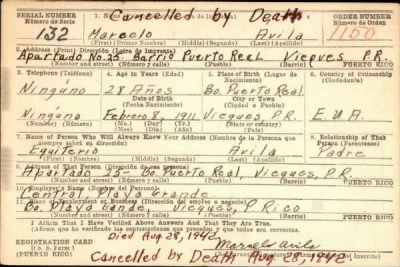 SERIAL NUMBER
Número de Serie
Cancelled by Death
ORDER NUMBER
Número de Orden
132 Marcelo Avila 1150
(First) (Primer Nombre) (Middle) (Segundo) (Last) (Apellido)
Apartado No. 25. Barrio Puerto Real Vieques P.R.
(Number and street) (Número y calle) (Town) (Pueblo) PUERTO RICO
3. Telephone (Teléfono) 4. Age in Years (Edad) 5. Place of Birth (Lugar de Nacimiento) 6. Country of Citizenship (Ciudadanía)
Ninguno 28 Años Bo. Puerto Real
Date of Birth (Fecha Nacimiento) City or Town (Ciudad o Pueblo)
Ninguno Febrero 8, 1911 Vieques, P.R. E.U.A.
7. Name of Person Who Will Always Know Your Address (Nombre de la Persona que siempre sabrá su dirección) 8. Relationship of That Person (Parentesco)
Equiterio Avila Padre
(First) (Primer Nombre) (Middle) (Segundo) (Last) (Apellido)
9. Address of That Person (Dirección de esa persona)
Apartado 25- Bo. Puerto Real, Vieques, P.R.
(Number and street) (Número y calle) (Town) (Pueblo) PUERTO RICO
10. Employer's Name (Nombre del Patrono)
Central Playa Grande
11. Place of Employment or Business (Dirección del empleo o negocio)
Bo. Playa Grande, Vieques, P. Rico
(Number and street) (Número y calle) (Town) (Pueblo) PUERTO RICO
I Affirm That I Have Verified Above Answers And That They Are True.
(Afirmo que he verificado las contestaciones que preceden y que todas son ciertas)
Died Aug. 28, 1942
REGISTRATION CARD
D. S. S. Form 1
(PUERTO RICO)
Marcelo Avila
Cancelled by Death Aug. 28, 1942.